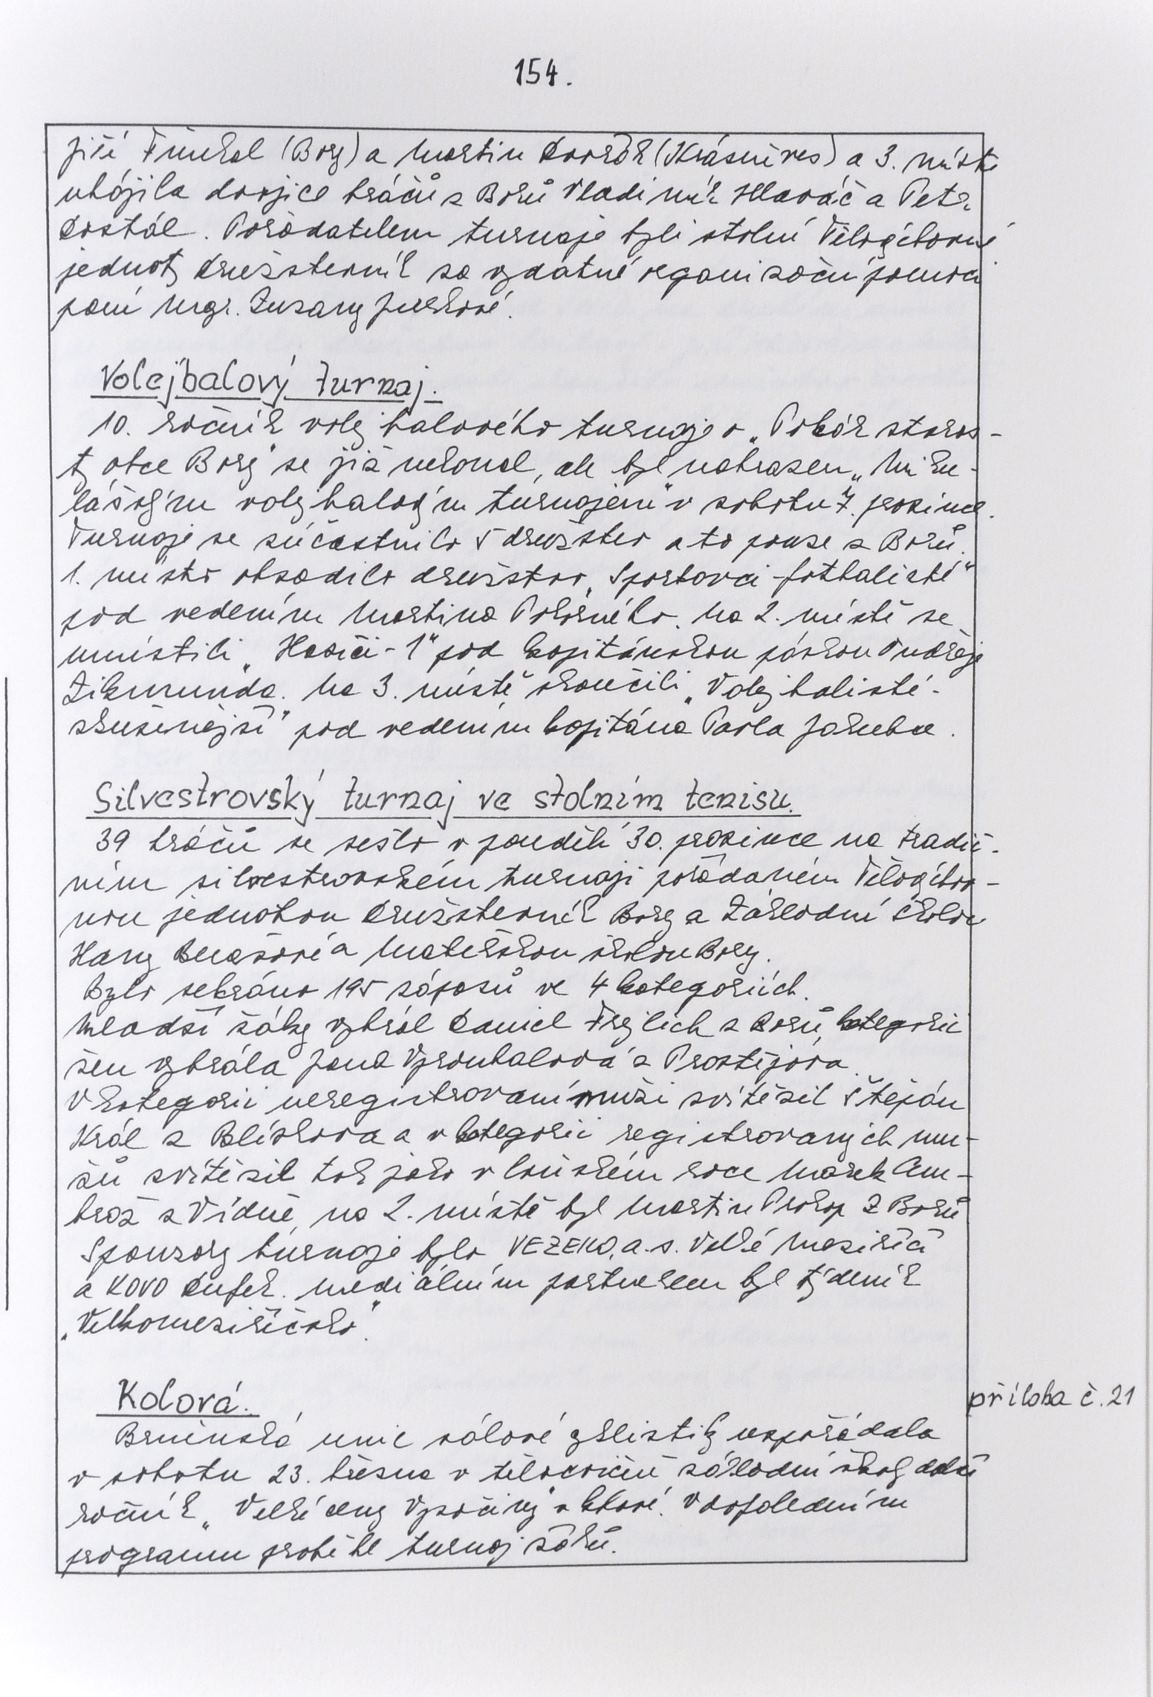 154.
Jiří Fünkel (Bory) a Martin Dvořák (Krásněves) a 3. místo
uhájila dvojice hráčů z Borů Vladimír Hlaváč a Petr
Dostál. Pořadatelem turnaje byli stolní Tělocvičné
jednoty Družstevník za vydatné organizační pomoci
paní Mgr. Zuzany Jurkové.
Volejbalový turnaj.
10. ročník volejbalového turnaje o „Pohár staros-
ty obce Bory" se již nekonal, ale byl nahrazen „Miku-
lášským volejbalovým turnajem" v sobotu 7. prosince.
Turnaje se zúčastnilo 5 družstev a to pouze z Borů.
1. místo obsadilo družstvo „Sportovci-fotbalisté"
pod vedením Martina Pokorného. Na 2. místě se
umístili „Hasiči-1" pod kapitánskou páskou Ondřeje
Zikmunda. Na 3. místě skončili „Volejbalisté-
zkušenější" pod vedením kapitána Pavla Jakubce.
Silvestrovský turnaj ve stolním tenisu.
39 hráčů se sešlo v pondělí 30. prosince na tradič-
ním silvestrovském turnaji pořádaném Tělocvič-
nou jednotou Družstevník Bory a Základní školou
Hany Benešové a Mateřskou školou Bory.
Bylo sehráno 195 zápasů ve 4 kategoriích.
Mladší žáky vyhrál Daniel Frejlich z Borů, kategorii
žen vyhrála Jana Vyroubalová z Prostějova.
V kategorii neregistrovaní muži zvítězil Štěpán
Král z Blízkova a v kategorii registrovaných mu-
žů zvítězil tak jako v loňském roce Marek Am-
brož z Vídně, na 2. místě byl Martin Prokop z Borů
Sponzory turnaje bylo VEZEKO, a.s. Velké Meziříčí
a KOVO Dufek. mediálním partnerem byl týdeník
„Velkomeziříčsko".
Kolová.
příloha č.21
Brněnská unie sálové cyklistiky uspořádala
v sobotu 23. března v tělocvičně základní školy další
ročník „Velké ceny Vysočiny" v kolové. V dopoledním
programu proběhl turnaj žáků.